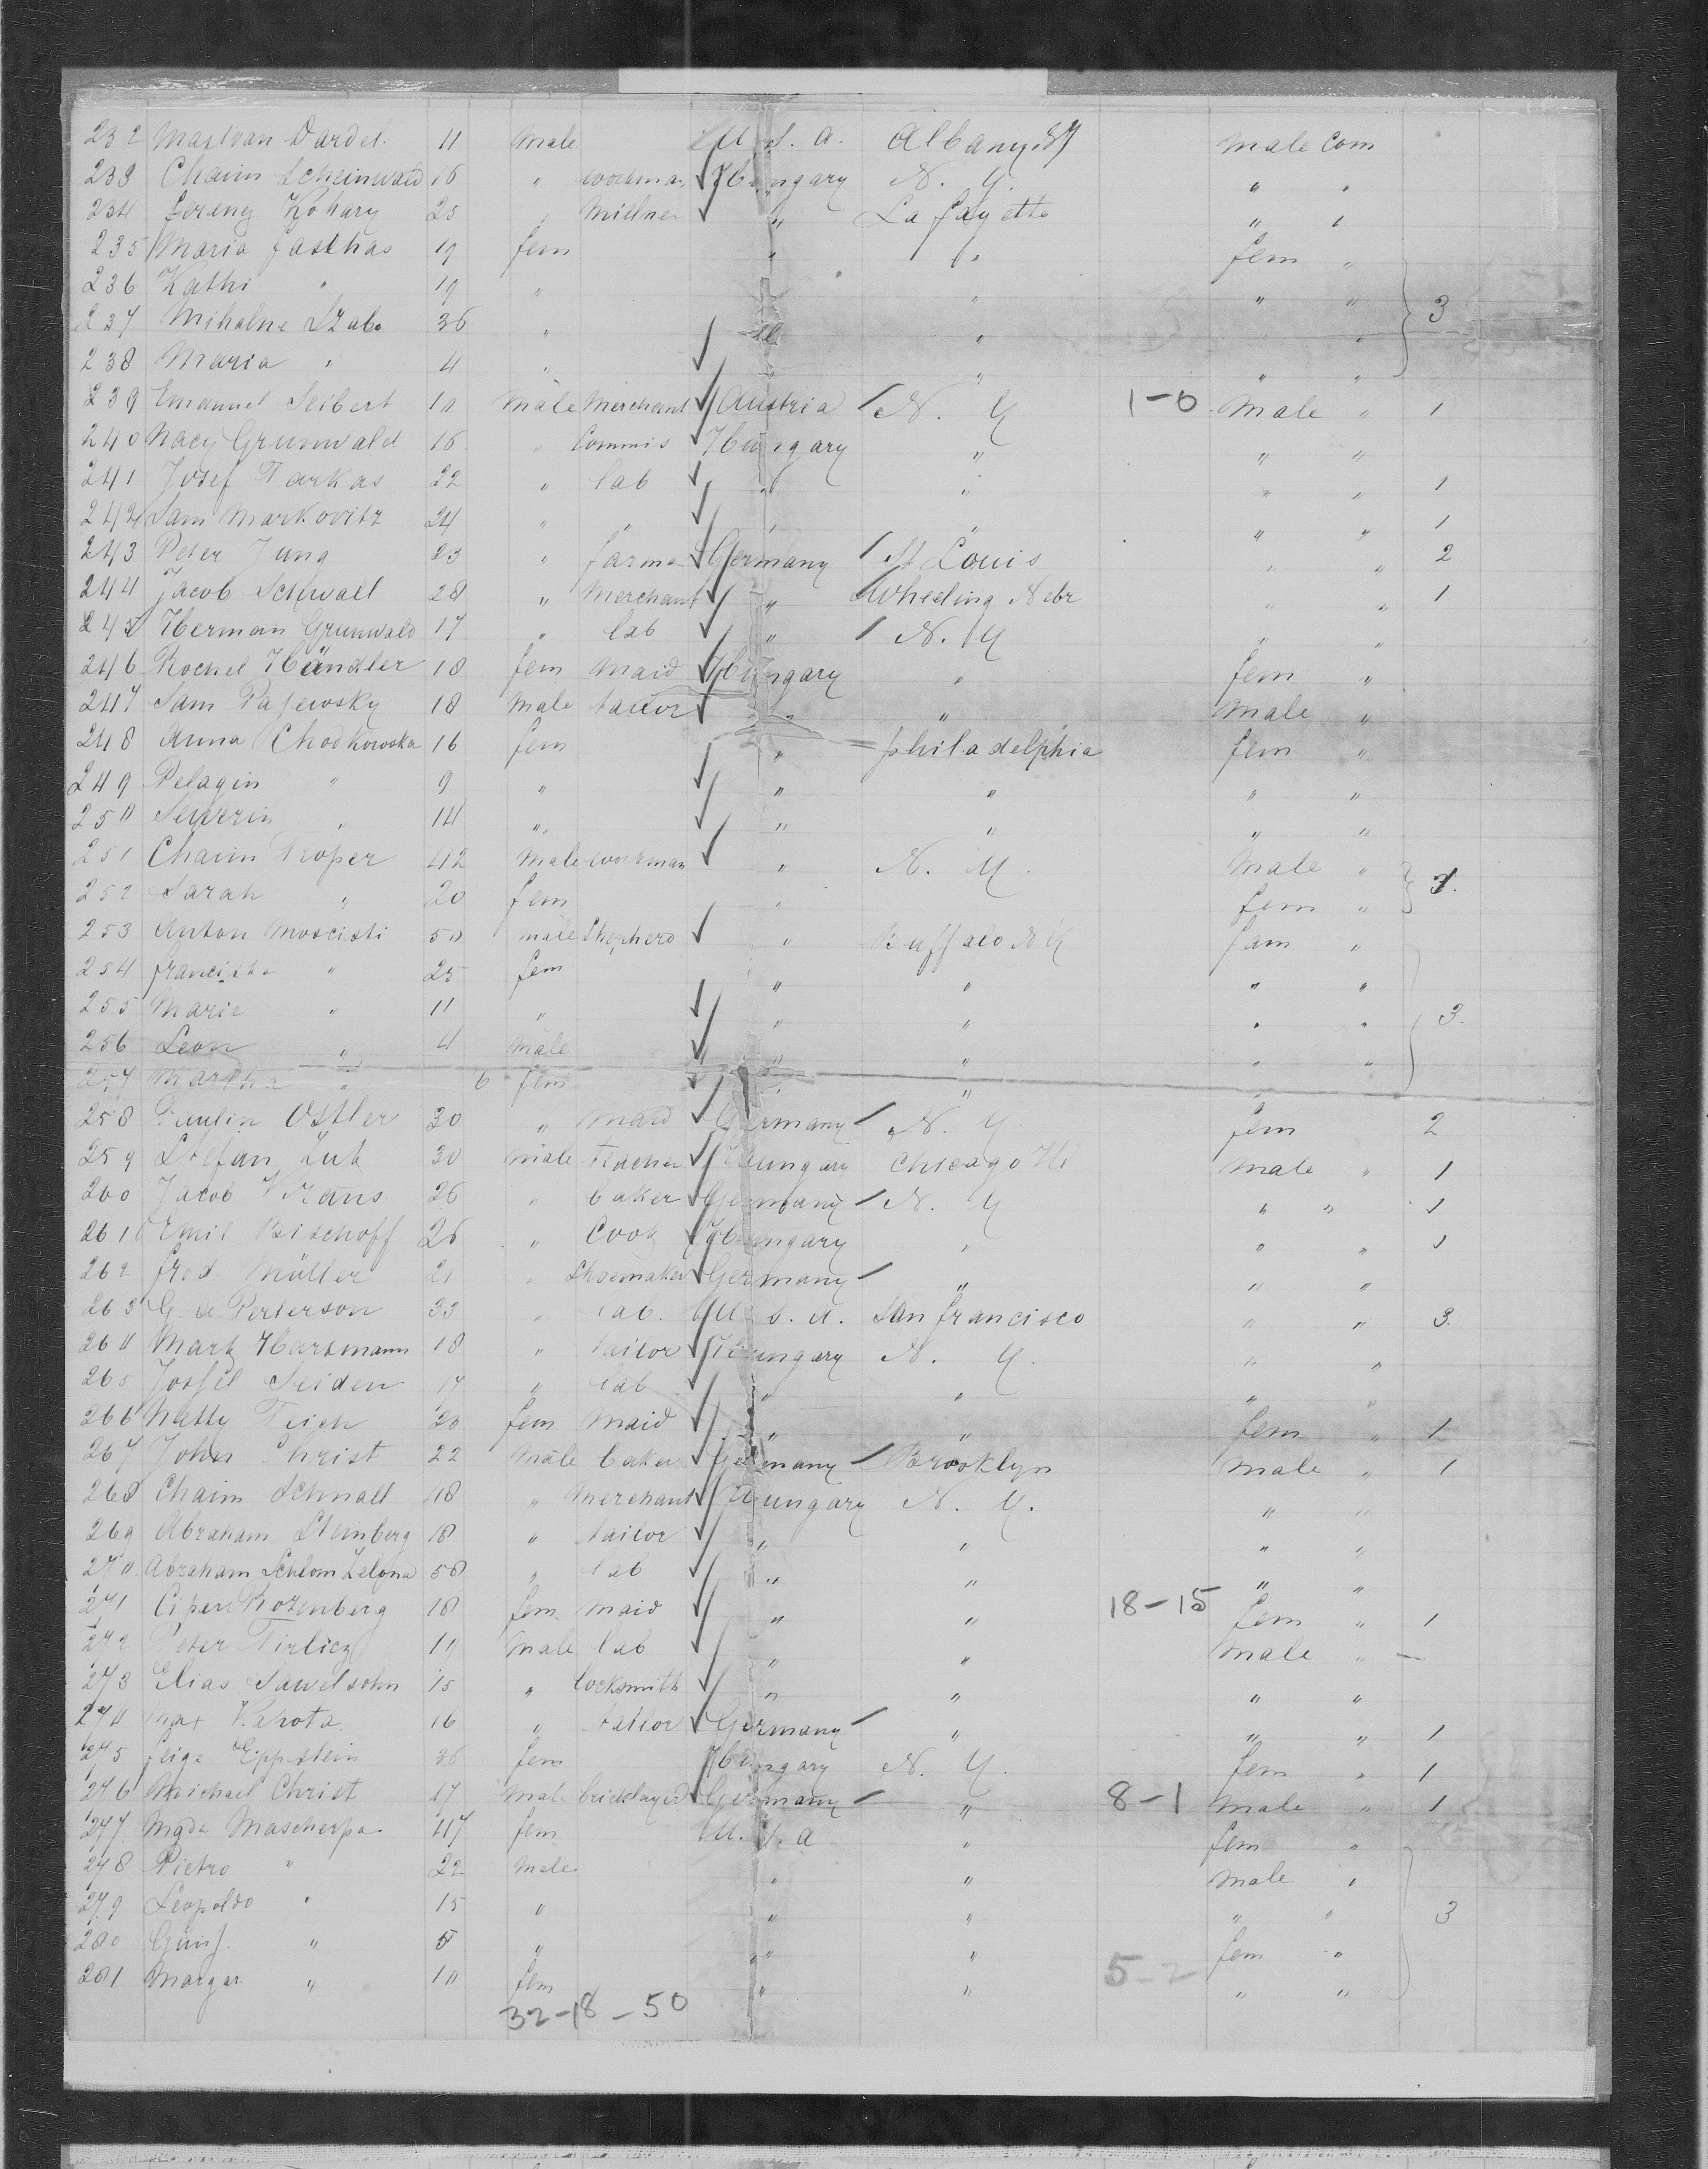 232 Dardel 11 male U.S.A. Albany male Com
233 Chaim Scheinwald 16 " workman Hungary N. Y. " "
234 Kohary 25 " Millner " La fayette " "
235 Maria 19 fem " " fem "
236 Kathi " 19 " " " "
237 Mihalne Szabo 36 " " " 3
238 Maria " 4 " " " " "
239 Emanuel Seibert male Merchant Austria N. Y 1-0 male " 1
240 Grunwald 16 " Commis Hungary " " "
241 Josef Farkas 22 " lab " " " " 1
242 Sam Markovitz 24 " " " " " " 1
243 Peter Jung 23 " farmer Germany St Louis " " 2
244 Jacob Schwall 28 " Merchant " Wheeling Nebr " " 1
245 Herman Grunwald 17 " lab " N. Y " "
246 Rochel Händler 18 fem maid Hungary " fem "
247 Sam Pajewsky 18 male tailor " " male "
248 Anna Chodkowska 16 fem " philadelphia fem "
249 Pelagin " 9 " " " " "
250 " 14 " " " " "
251 Chaim Troper 42 male workman " N. Y. male "
252 Sarah " 20 fem " fem "
253 Anton Moscisti 50 male Shepherd " Buffalo N Y fam "
254 " 25 fem " " " "
255 Marie " 11 " " " " " 3.
256 Leon " 4 male " " " "
257 Martha " 6 fem " "
258 Paulin Ostler 30 " maid Germany N. Y fem 2
259 Stefan 30 male Hungary Chicago Ill male " 1
260 Jacob 26 " baker Germany N. Y " " 1
261 Emil Bischoff 26 " Cook Hungary " " " 1
262 fred Müller 21 " Shoemaker Germany " " "
263 G. Peterson 33 " lab. U. S. A. San francisco " " 3.
264 Hartmann 18 " tailor Hungary N. Y. " "
265 Jossel Seiden 17 " lab " " " "
266 Netty Teich 20 fem maid " " fem " 1
267 John Christ 22 male baker Germany Brooklyn male " 1
268 Chaim Schnall 48 " merchant Hungary N. Y. " "
269 Abraham Sternberg 18 " tailor " " " "
270 Abraham Schlom Zelona 50 " lab " " " "
271 Rozenberg 18 fem maid " " 18-15 fem " 1
272 Peter male lab " " male " —
273 Elias Sawelsohn 15 " locksmith " " " "
274 Max 16 " tailor Germany " " " 1
275 feige Eppstein 36 fem Hungary N. Y. fem " 1
276 Michael Christ 17 male bricklayer Germany " 8-1 male " 1
277 Mascherpa 47 fem U. S. A " fem "
278 Pietro " 22 male " " male "
279 Leopoldo " 15 " " " " " 3
280 " " " " fem "
281 Margar " fem " " 5-2 " "
32-18-50